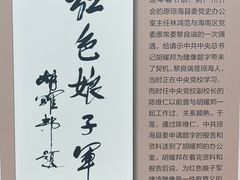 红色娘子軍
胡耀邦题
会的原琼海县委党史办公
室主任林鸿范与海南区党
委原常委黎良端的一次偶
遇，给请示中共中央总书
记胡耀邦为雕像题字带来
了契机。黎良端是琼海人，
当时正在中央党校学习，
而时任中央党校副校长的
陈维仁以前曾与胡耀邦一
起工作过，关系颇熟。于
是，通过陈维仁，中共琼
海县委申请题字的报告和
资料送到了胡耀邦的办公
室。胡耀邦在看完资料和
报告后说，为红色娘子军